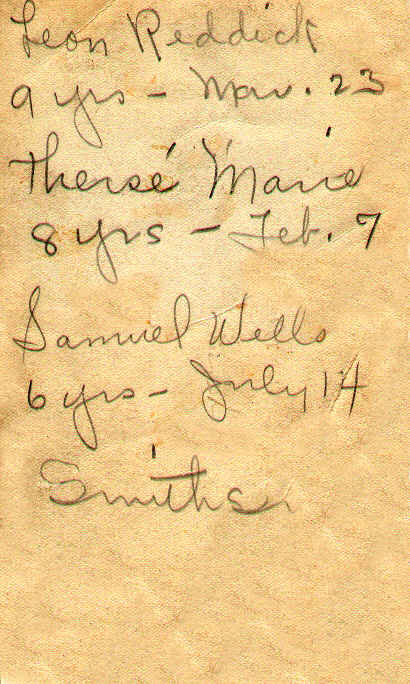 Leon Reddick
9 yrs - Mar. 23
Thersé Marie
8 yrs - Feb. 7
Samuel Wells
6 yrs - July 14
Smiths